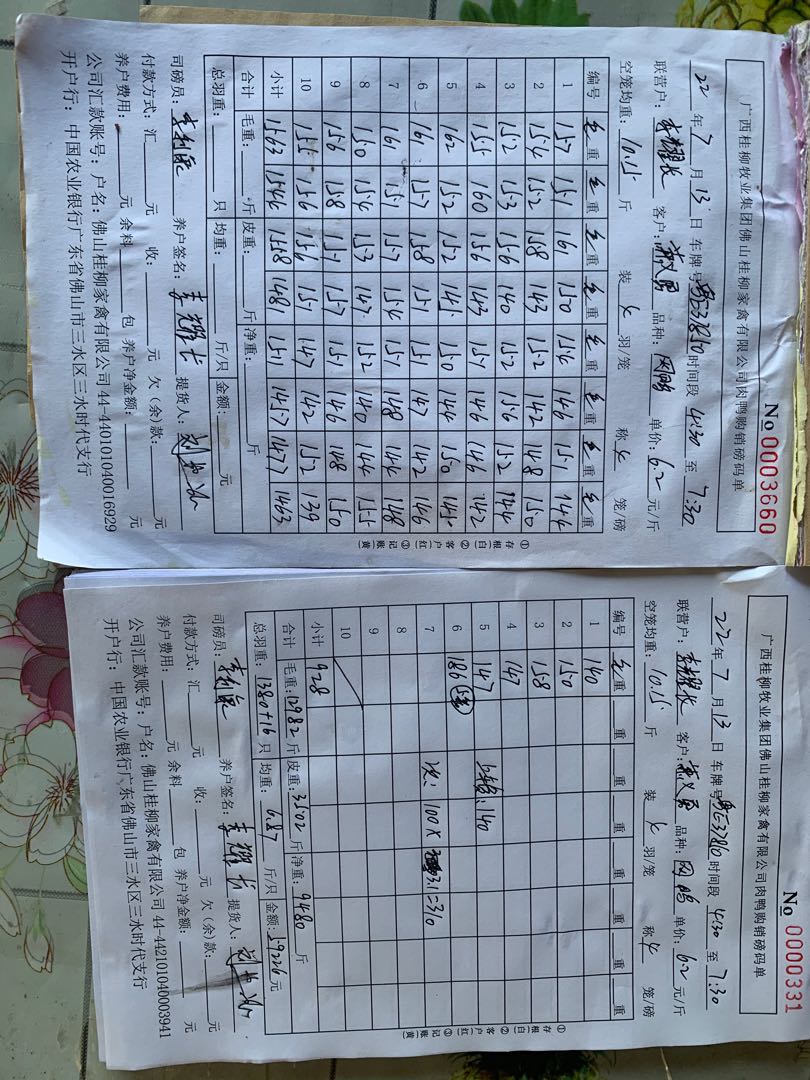 广西桂柳牧业集团佛山桂柳家禽有限公司肉鸭购销磅码单
No 0003660
22 年 7 月 13 日 车牌号 时间段 4:30 至 7:30
联营户: 李耀长 客户: 品种: 单价: 6.2 元/斤
空笼均重: 10.15 斤 装 羽/笼 称 4 笼/磅
编号 毛重 毛重 毛重 毛重 毛重 毛重 毛重 毛重
1 157 151 161 150 154 146 151 144
2 154 152 158 143 152 142 148 150
3 152 153 156 140 152 156 152 144
4 155 160 156 143 151 146 146 142
5 162 152 152 145 150 144 150 145
6 161 157 158 151 151 147 142 146
7 161 151 157 154 151 148 144 148
8 150 154 153 147 152 140 144 155
9 156 158 151 157 151 146 148 150
10 155 156 156 151 147 142 152 139
小计 1563 1544 1558 1481 1511 1457 1477 1463
合计 毛重: 斤 皮重: 斤 净重: 斤
总羽重: 只 均重: 斤/只 金额: 元
司磅员: 养户签名: 李耀长 提货人:
付款方式: 汇 元 收: 元 欠(余)款: 元
养户费用: 元 余料 包 养户净金额: 元
公司汇款账号: 户名: 佛山桂柳家禽有限公司 44-440101040016929
开户行: 中国农业银行广东省佛山市三水区三水时代支行
①存根(白) ②客户(红) ③记账(黄)
广西桂柳牧业集团佛山桂柳家禽有限公司肉鸭购销磅码单
No 0000331
22 年 7 月 13 日 车牌号 时间段 4:30 至 7:30
联营户: 李耀长 客户: 品种: 单价: 6.2 元/斤
空笼均重: 10.15 斤 装 羽/笼 称 4 笼/磅
编号 毛重 重 重 重 重 重 重 重
1 140
2 150
3 158
4 147
5 147 140
6 186
7 100× 3.1=310
8
9
10
小计 928
合计 毛重: 12982 斤 皮重: 3502 斤 净重: 9480 斤
总羽重: 1380+16 只 均重: 6.87 斤/只 金额: 59226 元
司磅员: 养户签名: 李耀长 提货人:
付款方式: 汇 元 收: 元 欠(余)款: 元
养户费用: 元 余料 包 养户净金额: 元
公司汇款账号: 户名: 佛山桂柳家禽有限公司 44-442101040003941
开户行: 中国农业银行广东省佛山市三水区三水时代支行
①存根(白) ②客户(红) ③记账(黄)